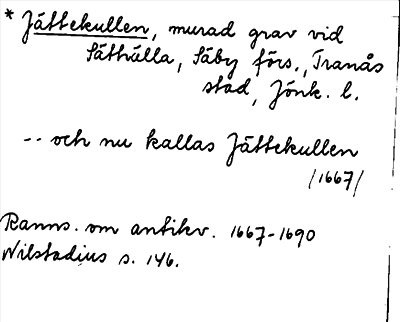 * Jättekullen, murad grav vid
Säthälla, Säby förs., Tranås
stad, Jönk. l.
-- och nu kallas Jättekullen
/1667/
Ranns. om antikv. 1667-1690
Nilstadius s. 146.